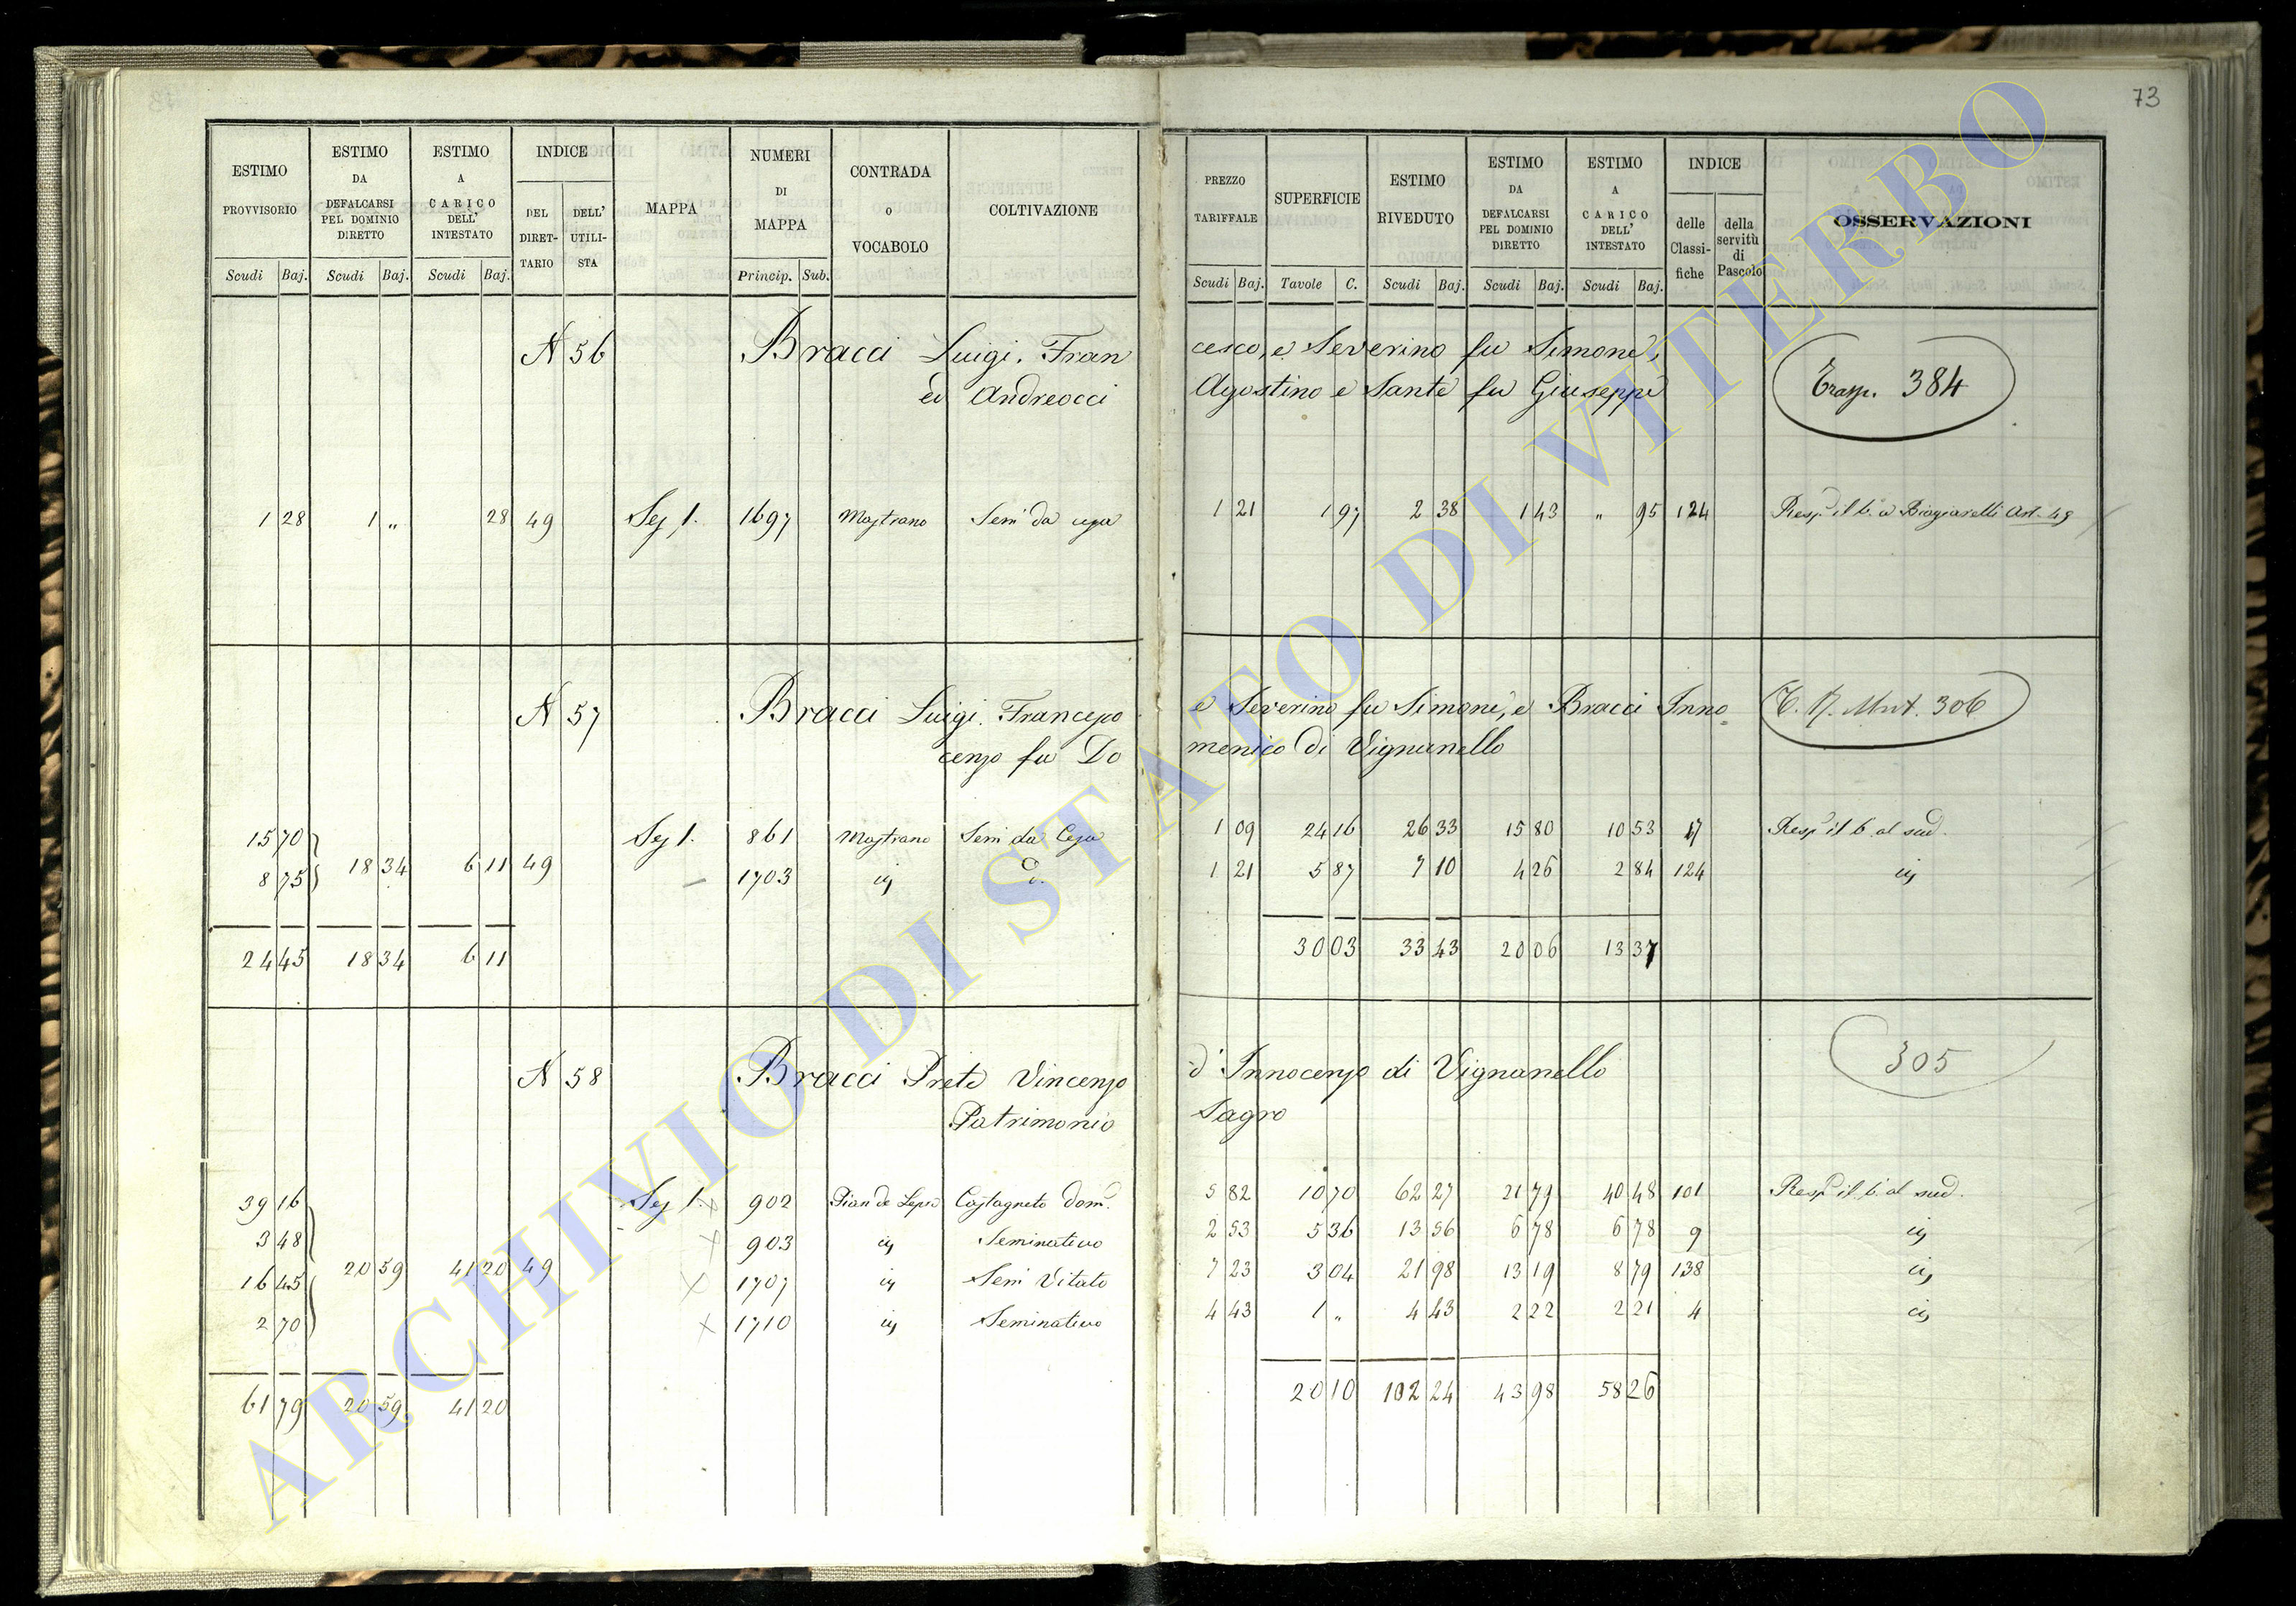 73
ESTIMO PROVVISORIO | ESTIMO DA DEFALCARSI PEL DOMINIO DIRETTO | ESTIMO A CARICO DELL' INTESTATO | INDICE | MAPPA | NUMERI DI MAPPA | CONTRADA O VOCABOLO | COLTIVAZIONE | PREZZO TARIFFALE | SUPERFICIE | ESTIMO RIVEDUTO | ESTIMO DA DEFALCARSI PEL DOMINIO DIRETTO | ESTIMO A CARICO DELL' INTESTATO | INDICE | OSSERVAZIONI
DEL DIRETTARIO | DELL' UTILISTA | delle Classifiche | della servitù di Pascolo
Scudi | Baj. | Scudi | Baj. | Scudi | Baj. | Princip. | Sub. | Scudi | Baj. | Tavole | C. | Scudi | Baj. | Scudi | Baj. | Scudi | Baj.
N 56 Bracci Luigi, Fran cesco, e Severino fu Simone,
ed Andreocci Agostino e Sante fu Giuseppe
Trasp. 384
1 28 | 1 „ | 28 | 49 | Sez 1. | 1697 | Mastrano | Sem da | 1 21 | 1 97 | 2 38 | 1 43 | „ 95 | 124 | Resp. il b. a Biagiarelli Art. 49
N 57 Bracci Luigi. Francesco e Severino fu Simone, e Bracci Inno
cenzo fu Do menico di Vignanello
306
15 70 | Sez 1. | 861 | Mastrano | Sem da | 1 09 | 24 16 | 26 33 | 15 80 | 10 53 | 17 | Resp il b. al sud.
8 75 | 18 34 | 6 11 | 49 | 1703 | 1 21 | 5 87 | 7 10 | 4 26 | 2 84 | 124
24 45 | 18 34 | 6 11 | 30 03 | 33 43 | 20 06 | 13 37
N 58 Bracci Prete Vincenzo d'Innocenzo di Vignanello
Patrimonio Sagro
305
39 16 | Sez 1. | x | 902 | Pian de | Castagneto Dom. | 5 82 | 10 70 | 62 27 | 21 79 | 40 48 | 101 | Resp il b. al sud.
3 48 | x | 903 | Seminativo | 2 53 | 5 36 | 13 56 | 6 78 | 6 78 | 9
16 45 | 20 59 | 41 20 | 49 | x | 1707 | Sem Vitato | 7 23 | 3 04 | 21 98 | 13 19 | 8 79 | 138
2 70 | x | 1710 | Seminativo | 4 43 | 1 „ | 4 43 | 2 22 | 2 21 | 4
61 79 | 20 59 | 41 20 | 20 10 | 102 24 | 43 98 | 58 26
ARCHIVIO DI STATO DI VITERBO